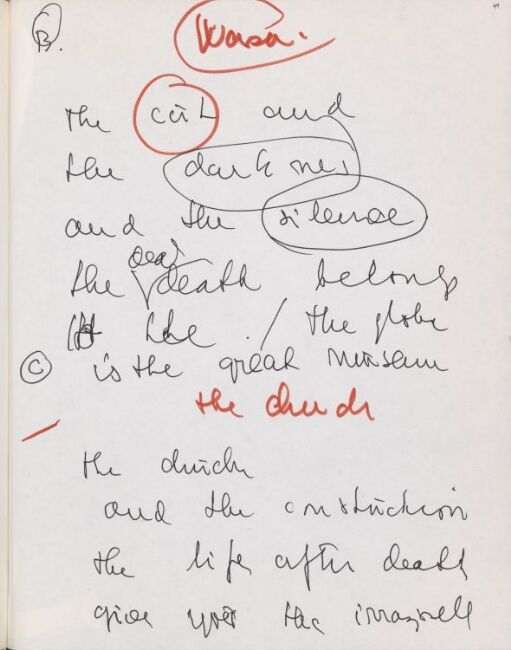 B.
Wasa.
the cat and
the darknes
and the silence
dead
the death belong
the globe
C is the great museum
the church
the
and the construction
the life after death
give the